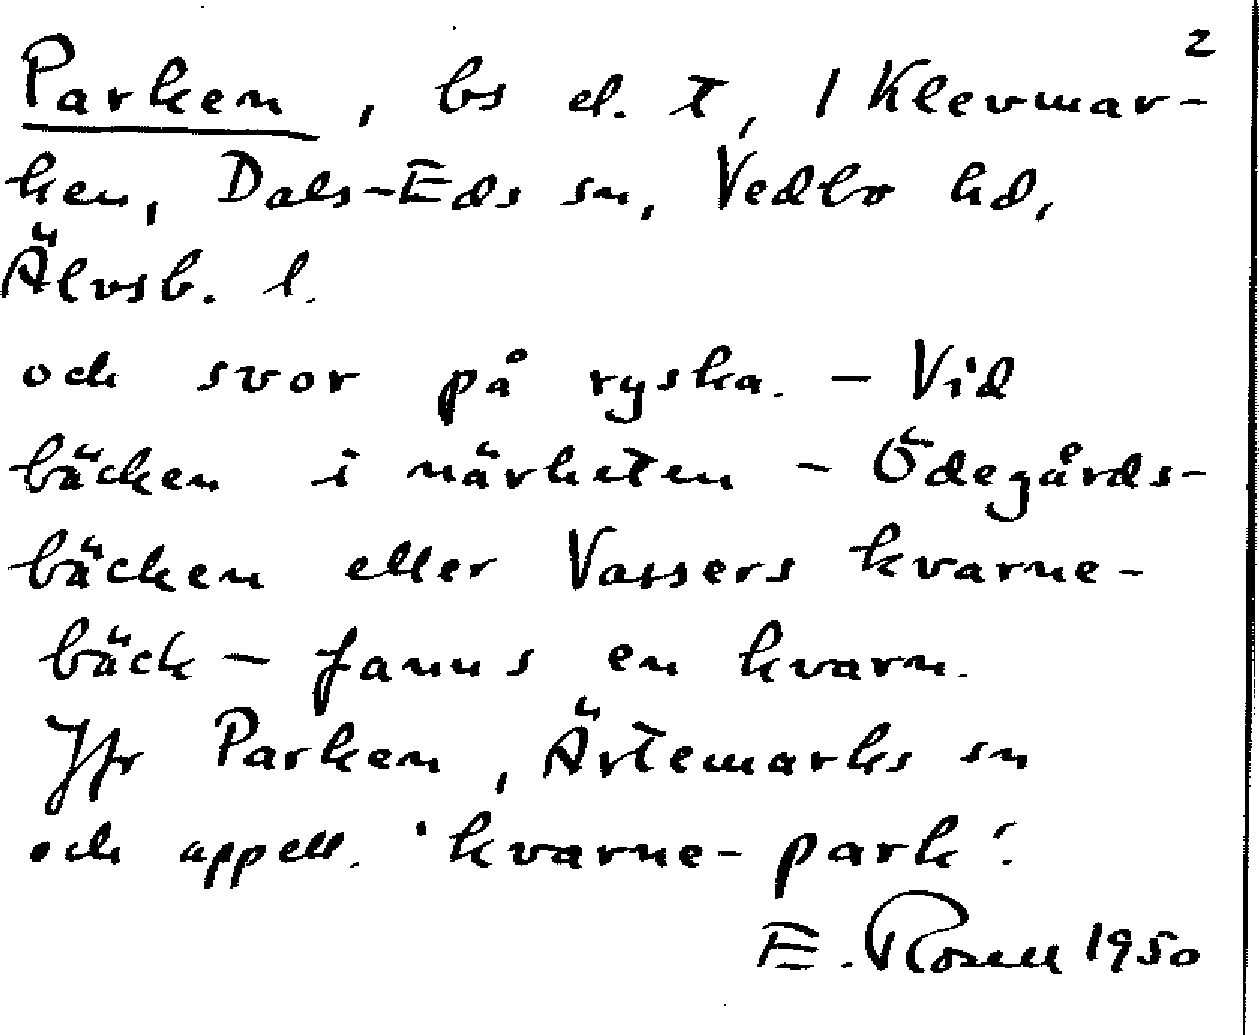 2
Parken, bs el. t, 1 Klevmar-
ken, Dals-Eds sn, Vedbo hd,
Älvsb. l.
och svor på ryska. - Vid
bäcken i närheten - Ödegårds-
bäcken eller Vassers kvarne-
bäck - fanns en kvarn.
Jfr Parken, Ärtemarks sn
och appell. 'kvarne-park'.
E. Rosell 1950